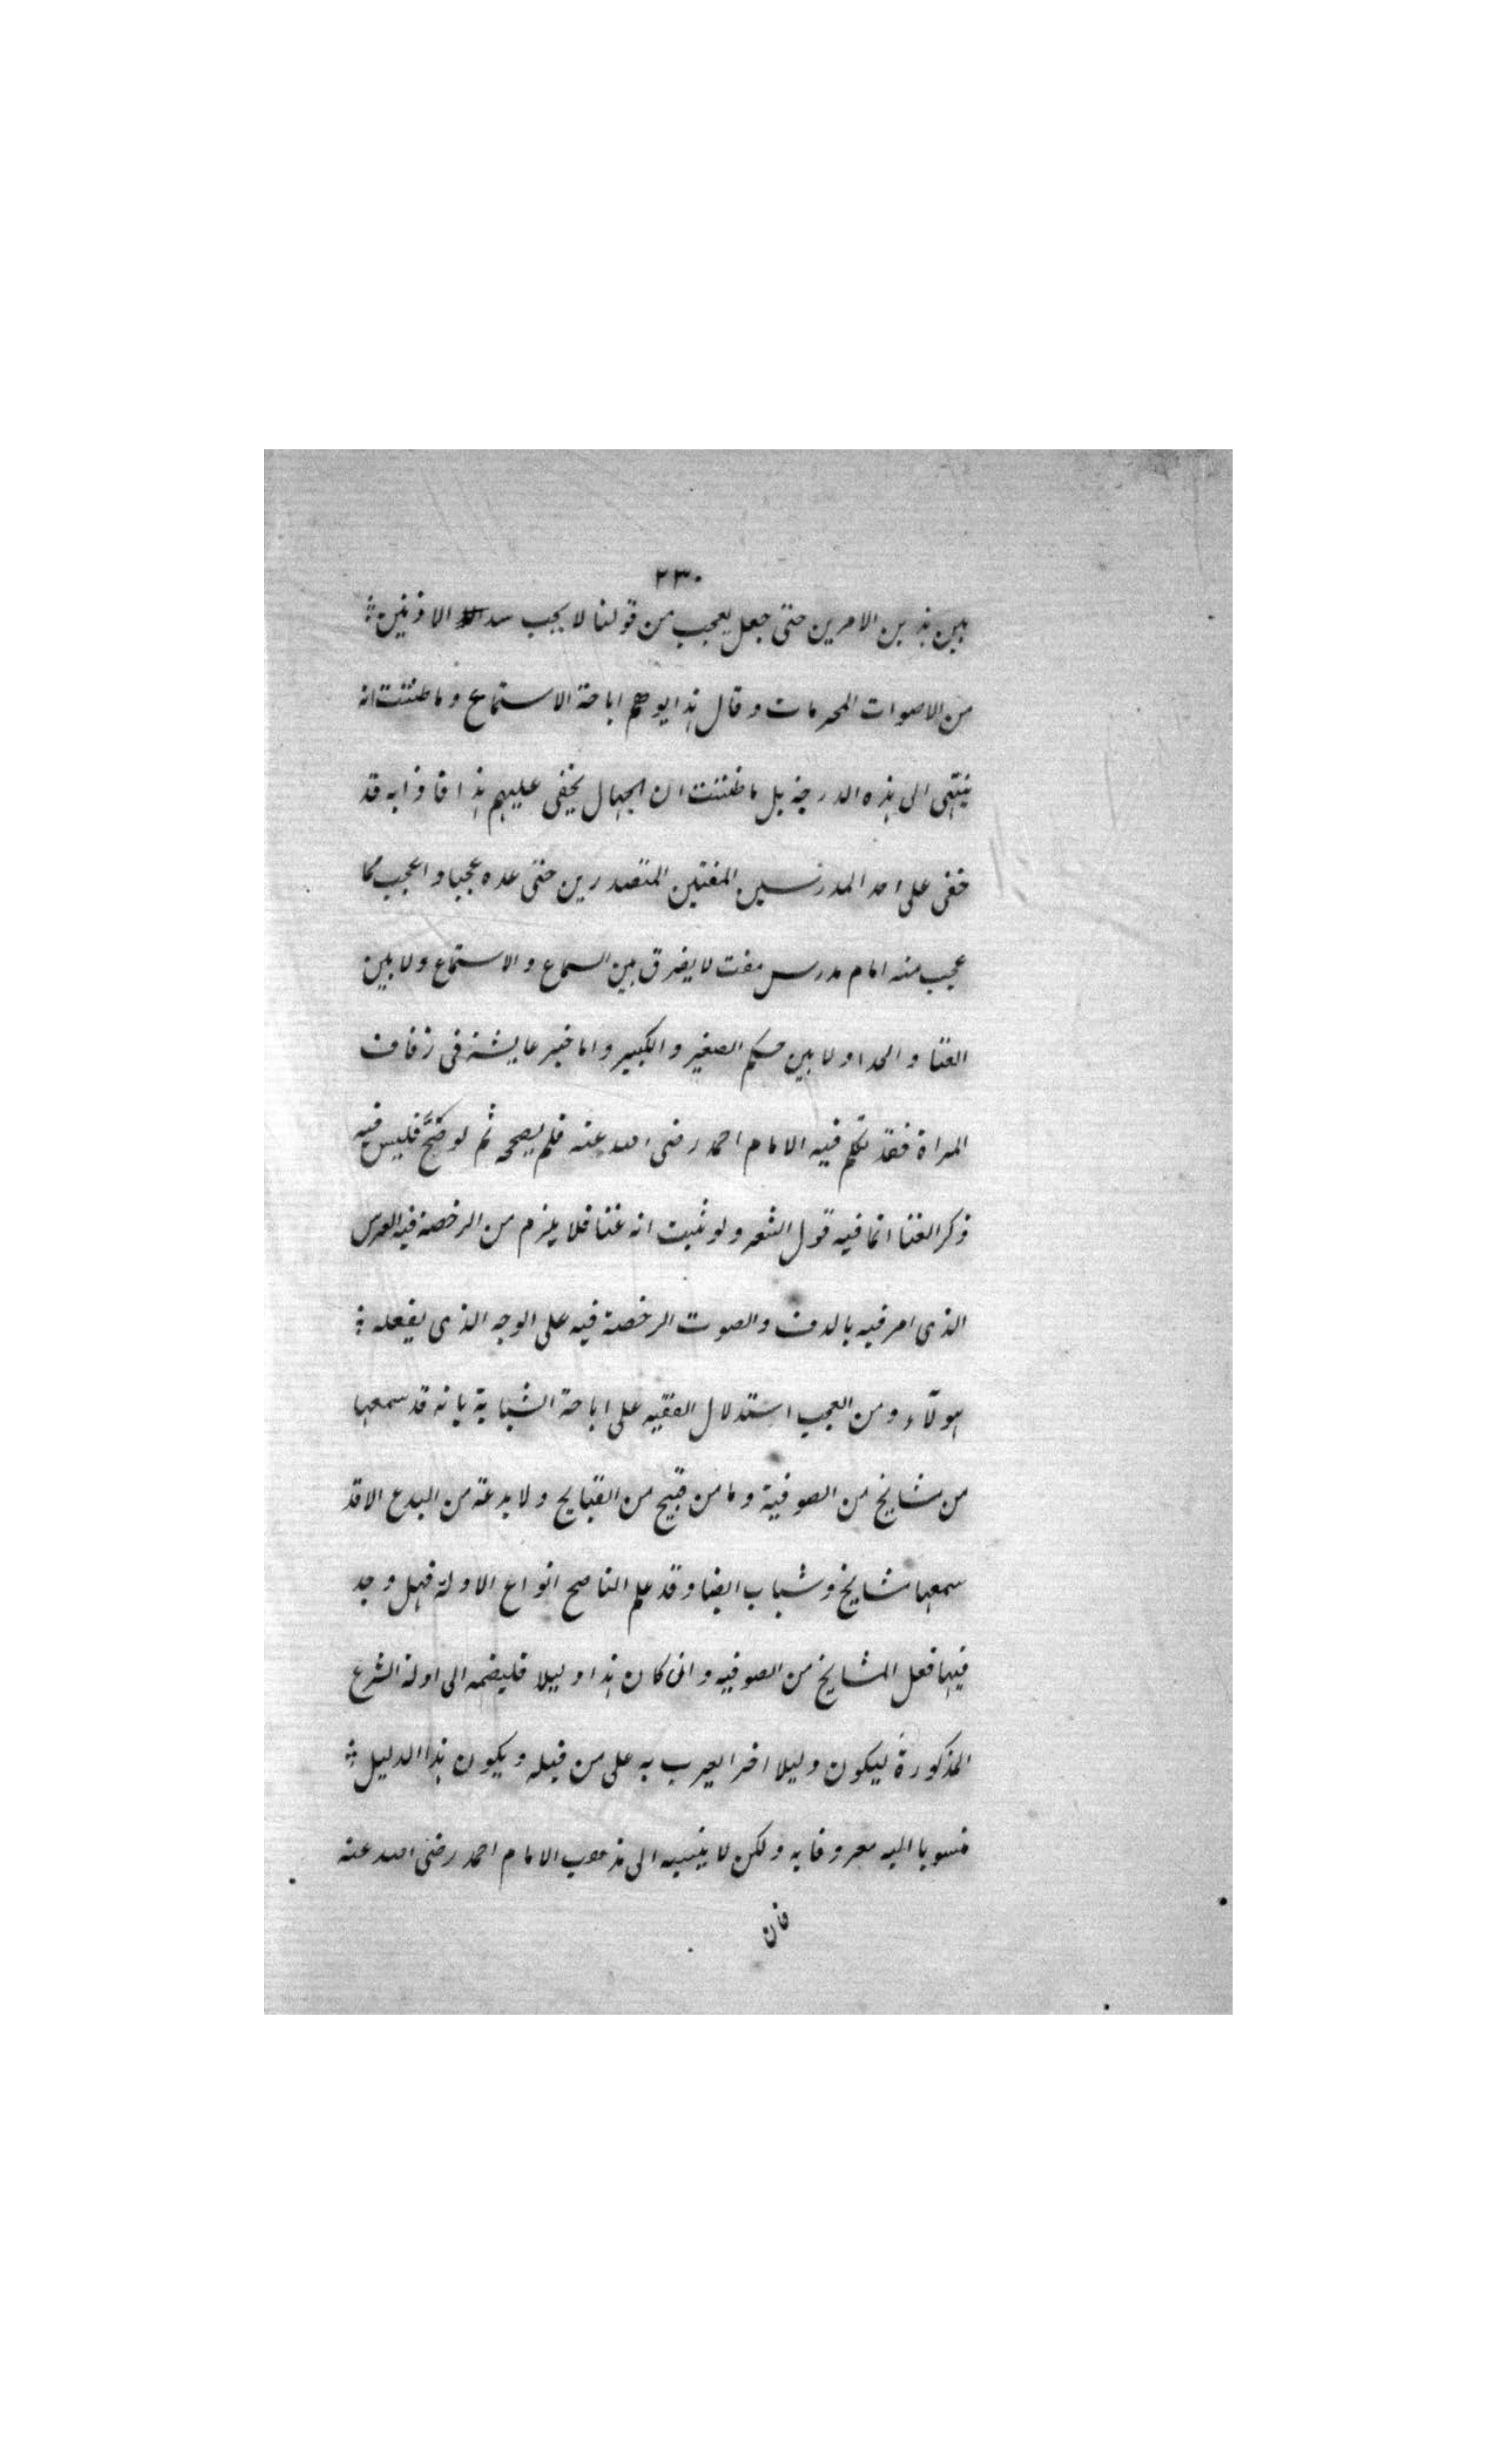 ٢٣٠
بين هذين الامرين حتى جعل يعجب من قولنا لا يجب سد الاذنين
من الاصوات المحرمات وقال هذا يوهم اباحة الاستماع وما ظننت انه
ينتهى الى هذه الدرجة بل ما ظننت ان الجهال يخفى عليهم هذا فاذا به قد
خفى على احد المدرسين المفتين المتصدرين حتى عده عجبا واعجب مما
عجب منه امام مدرس مفت لا يفرق بين السماع والاستماع ولا بين
الغنا والحدا ولا بين حكم الصغير والكبير واما خبر عايشة فى زفاف
المراة فقد تكلم فيه الامام احمد رضى الله عنه فلم يصححه ثم لو صَحَّ فليس فيه
ذكر الغنا انما فيه قول الشعر ولو ثبت انه غنا فلا يلزم من الرخصة فيه العرس
الذى امر فيه بالدف والصوت الرخصة فيه على الوجه الذى يفعله
هولآء ومن العجب استدلال الفقيه على اباحة الشبابة بانه قد سمعها
من مشايخ من الصوفية وما من قبيح من القبايح ولا بدعة من البدع الا قد
سمعها مشايخ وشباب ايضا وقد علم الناصح انواع الادلة فهل وجد
فيها فعل المشايخ من الصوفيه وان كان هذا دليلا فليضمه الى ادلة الشرع
المذكورة ليكون دليلا اخرا يعرب به على من قبله ويكون هذا الدليل
منسوبا اليه معروفا به ولكن لا ينسبه الى مذهب الامام احمد رضى الله عنه
فان